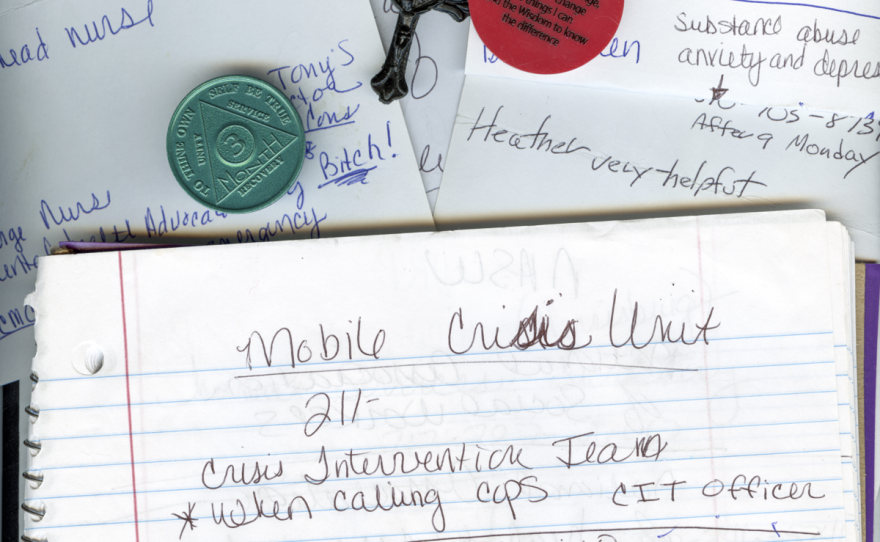 head nurse
Tony's
Cons
Bitch!
Nurse
Health Advoca
TO THINE OWN SELF BE TRUE
UNITY SERVICE RECOVERY
3
MONTH
change
things I can
the Wisdom to know
the difference
en
substance abuse
anxiety and depres
After 9 Monday
Heather very helpful
Mobile Crisis Unit
211-
Crisis Intervention Team
*when calling cops CIT Officer